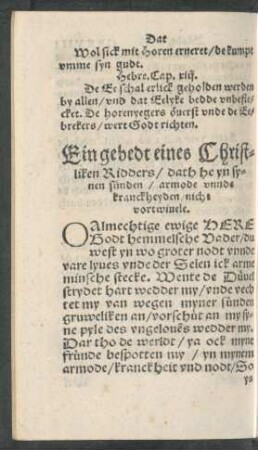 Dat
Wol sick mit Horen erneret / de kumpt
vmme syn gudt.
Hebre. Cap. xiij.
De Ee schal erlick geholden werden
by allen / vnd dat Eelyke bedde vnbefle-
cket. De horenyegers öuerst vnde de Ee-
brekers / wert Godt richten.
Ein gebedt eines Christ-
liken Ridders / dath he yn sy-
nen sünden / armode vnnde
kranckheyden / nicht
vortwiuele.
O Almechtige ewige HERE
Godt hemmelsche Vader / du
west yn wo groter nodt vnnde
vare lyues vnde der Selen ick arme
minsche stecke. Wente de Düuel
strydet hart wedder my / vnde vech
tet my van wegen myner sünden
gruweliken an / vorschüt an my sy-
ne pyle des vngelouēs wedder my.
Dar tho de werldt / ya ock myne
fründe bespotten my / yn mynem
armode / kranckheit vnd nodt / So
ys